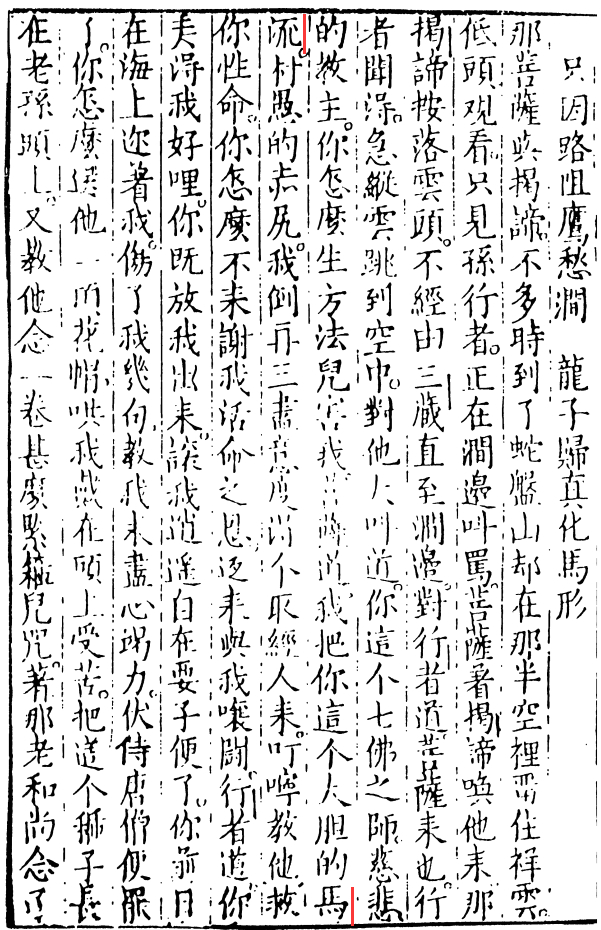 只因路阻鷹愁澗　龍子歸真化馬形
那菩薩與揭諦。不多時到了蛇盤山却在那半空裡留住祥雲。
低頭观看。只見孫行者。正在澗邊叫罵。菩薩着揭諦喚他来。那
揭諦按落雲頭。不經由三藏直至澗邊。對行者道。菩薩来也。行
者聞得。急縱雲跳到空中。對他大叫道。你這个七佛之師。慈悲
的教主。你怎麼生方法兒害我。菩薩道。我把你這个大胆的馬
流。村愚的赤尻。我倒再三盡意度得个取經人来。叮嚀教他救
你性命。你怎麼不来謝我活命之恩。返来與我嚷鬧。行者道。你
弄得我好哩。你既放我出来。讓我逍遥自在耍子便了。你前日
在海上迎着我。傷了我幾句。教我来盡心竭力。伏侍唐僧便罷
了。你怎麼送他一頂花帽。哄我戴在頭上受苦。把這个箍子長
在老孫頭上。又教他念一卷甚麼緊箍兒咒。著那老和尚念了